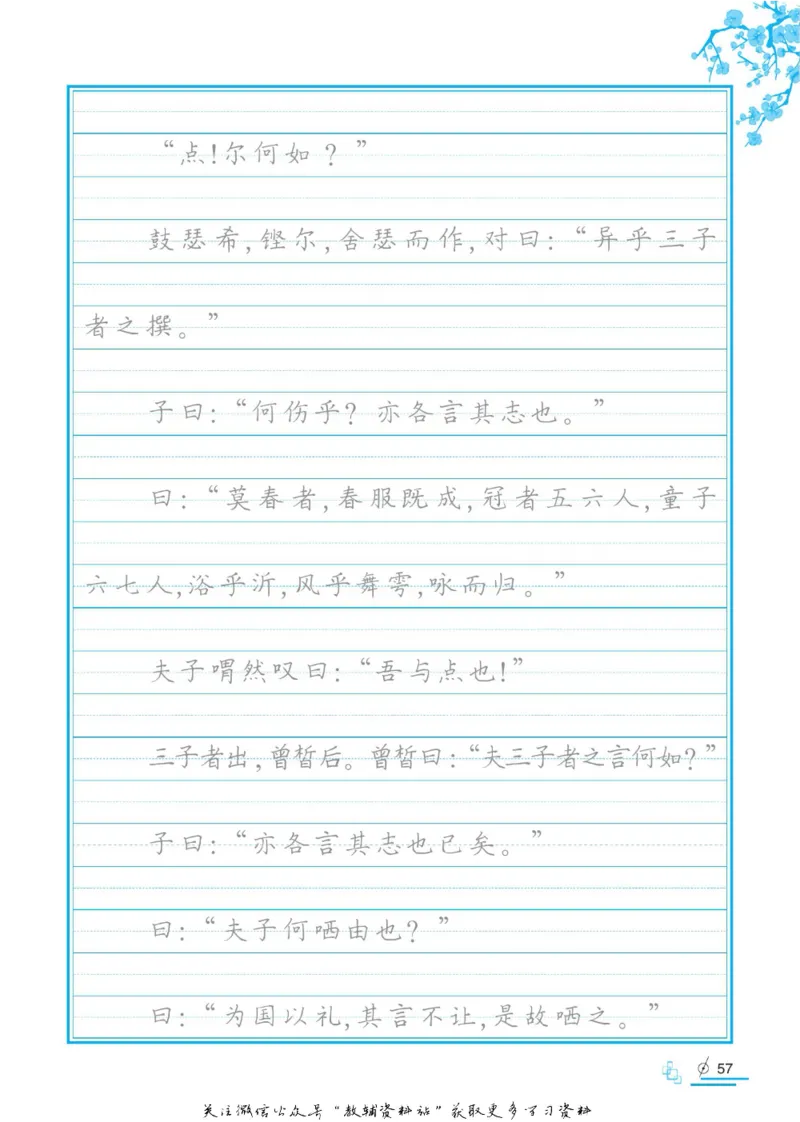 “点!尔何如？”
鼓瑟希,铿尔,舍瑟而作,对曰:“异乎三子
者之撰。”
子曰:“何伤乎?亦各言其志也。”
曰:“莫春者,春服既成,冠者五六人,童子
六七人,浴乎沂,风乎舞雩,咏而归。”
夫子喟然叹曰:“吾与点也!”
三子者出,曾皙后。曾皙曰:“夫三子者之言何如?”
子曰:“亦各言其志也已矣。”
曰:“夫子何哂由也?”
曰:“为国以礼,其言不让,是故哂之。”
57
关注微信公众号“教辅资料站”获取更多学习资料